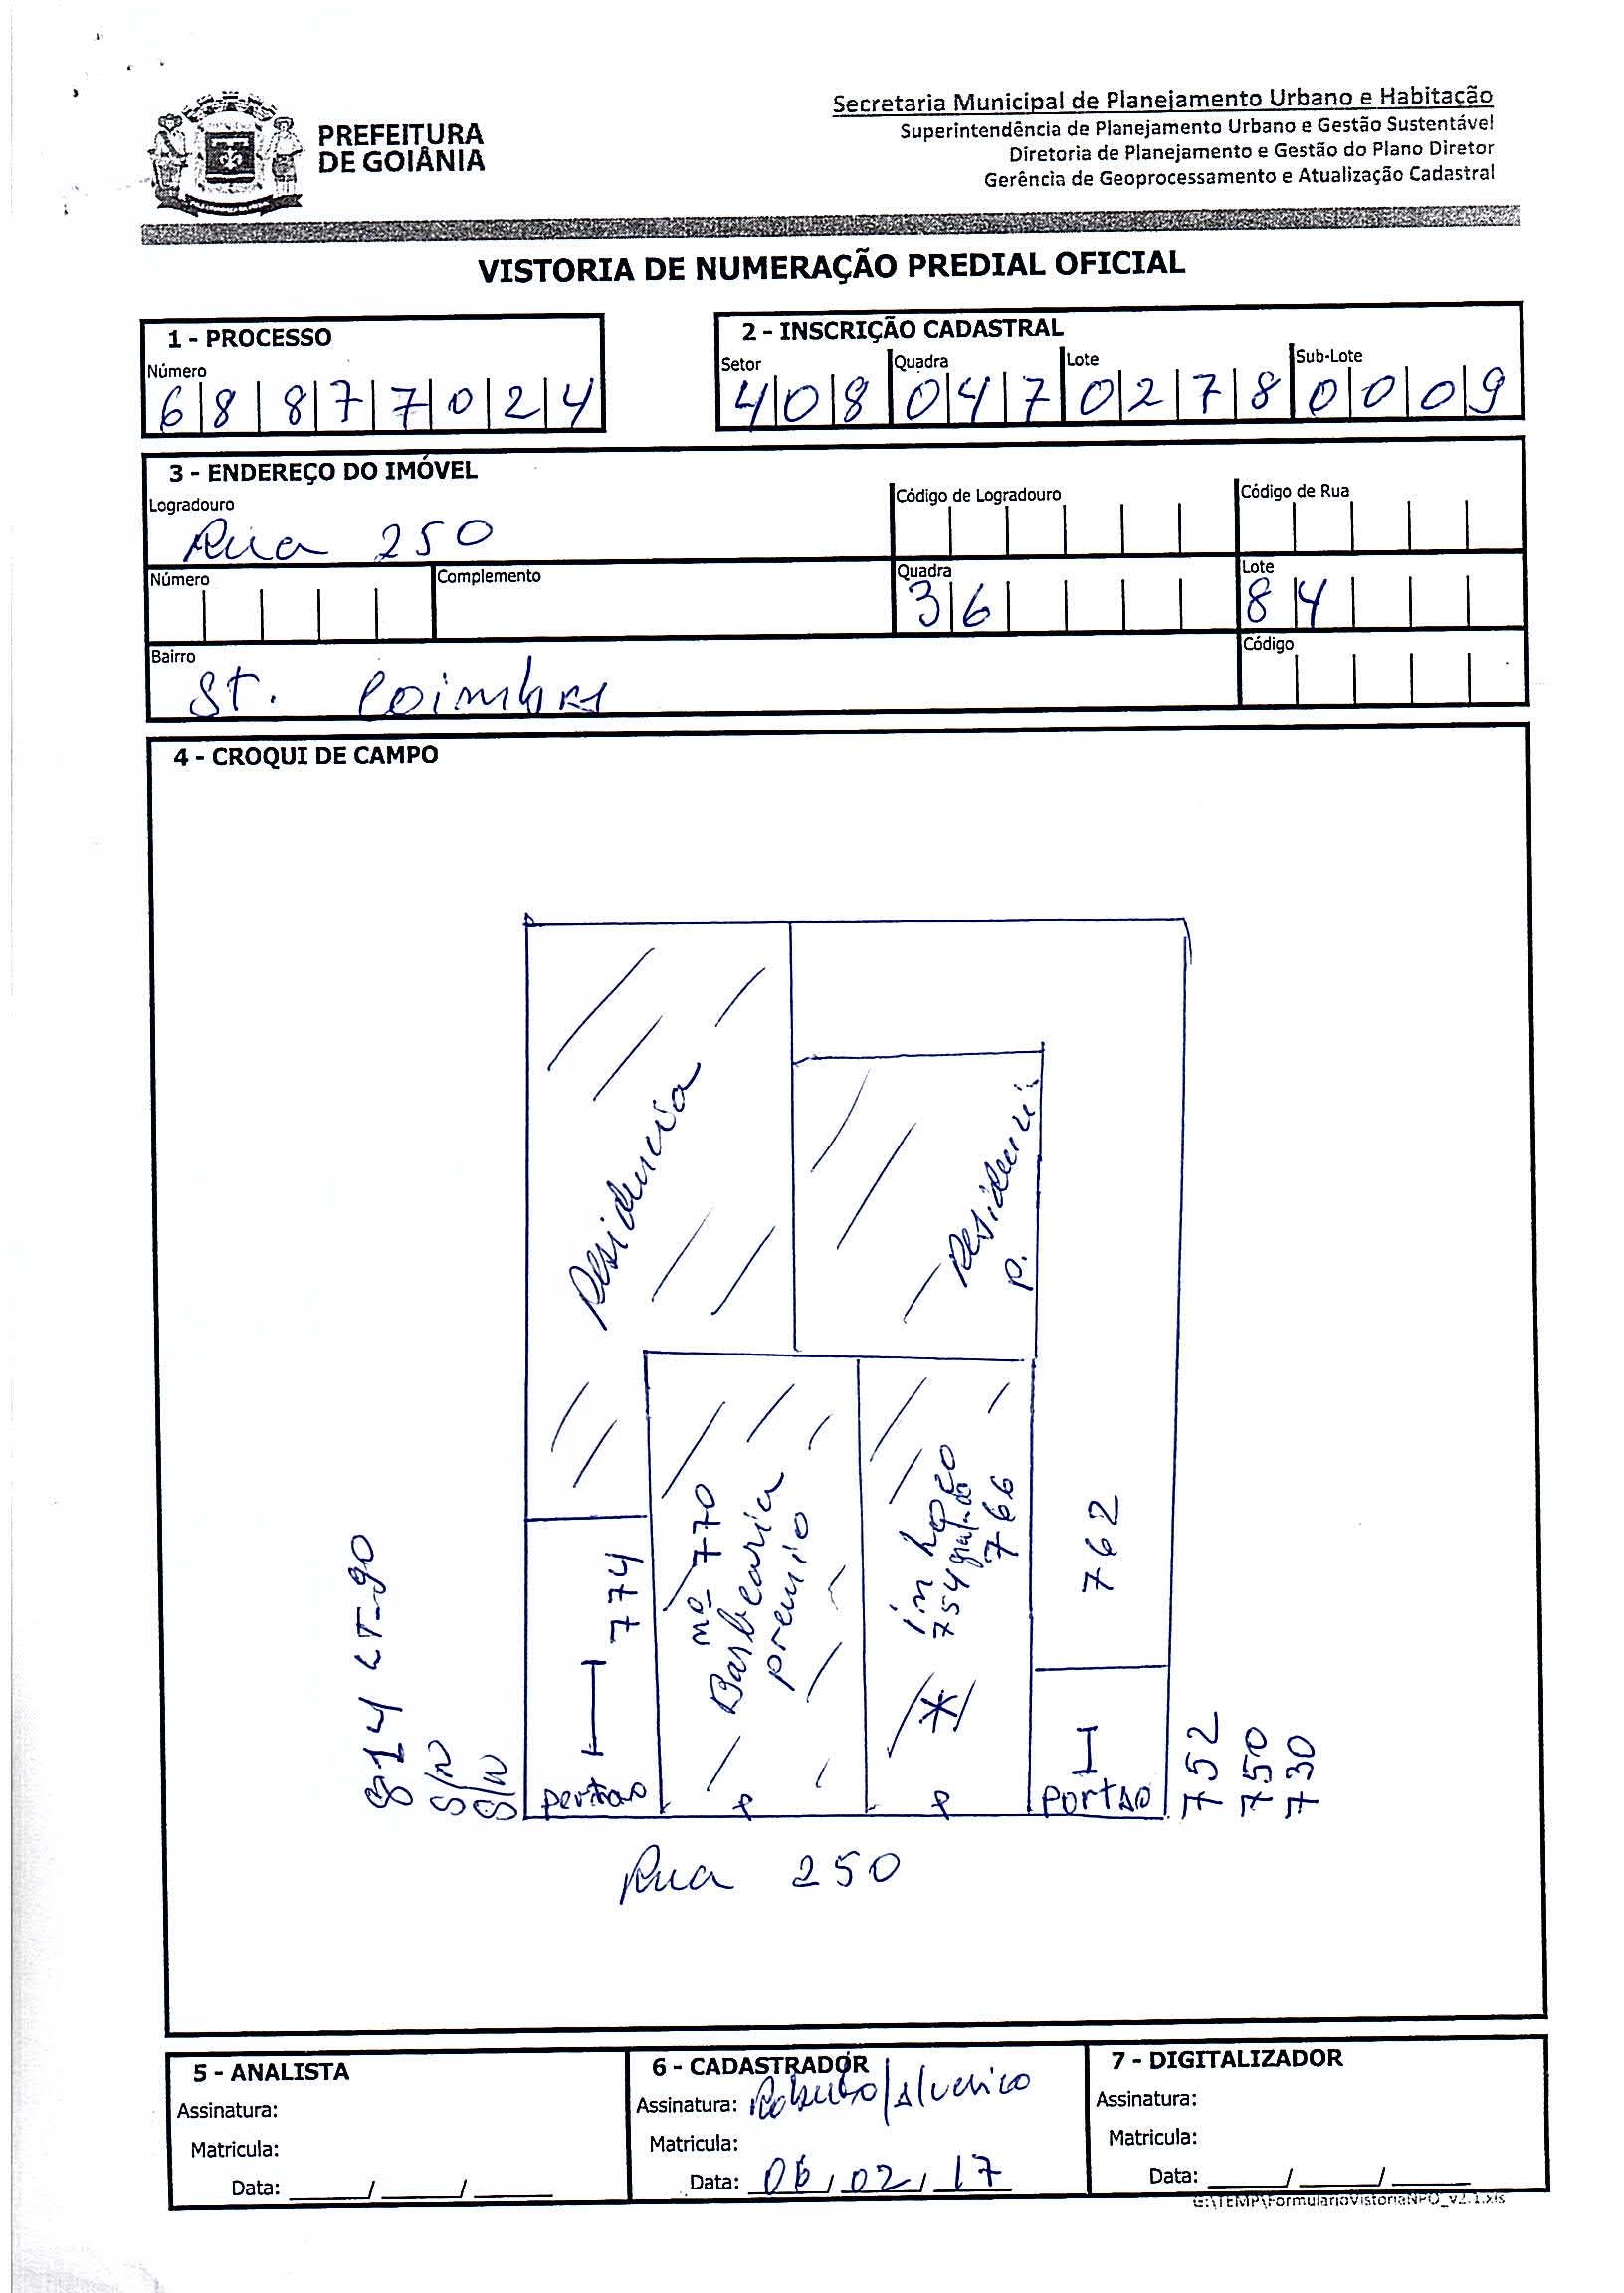 PREFEITURA
DE GOIÂNIA
Secretaria Municipal de Planejamento Urbano e Habitação
Superintendência de Planejamento Urbano e Gestão Sustentável
Diretoria de Planejamento e Gestão do Plano Diretor
Gerência de Geoprocessamento e Atualização Cadastral
VISTORIA DE NUMERAÇÃO PREDIAL OFICIAL
1 - PROCESSO
Número
68877024
2 - INSCRIÇÃO CADASTRAL
Setor Quadra Lote Sub-Lote
408 047 0278 0009
3 - ENDEREÇO DO IMÓVEL
Logradouro Código de Logradouro Código de Rua
Rua 250
Número Complemento Quadra Lote
36 84
Bairro Código
St. Coimbra
4 - CROQUI DE CAMPO
Residencia
Residenci
P.
774
nº 770
Barbearia
premio
in loco
754 grafado
766
762
814 LT-90
S/N
S/N
portao
portao
752
750
730
Rua 250
5 - ANALISTA
Assinatura:
Matricula:
Data: ___/___/___
6 - CADASTRADOR
Assinatura: Roberto/
Matricula:
Data: 06/02/17
7 - DIGITALIZADOR
Assinatura:
Matricula:
Data: ___/___/___
G:\TEMP\FormularioVistoriaNPO_v2.1.xls